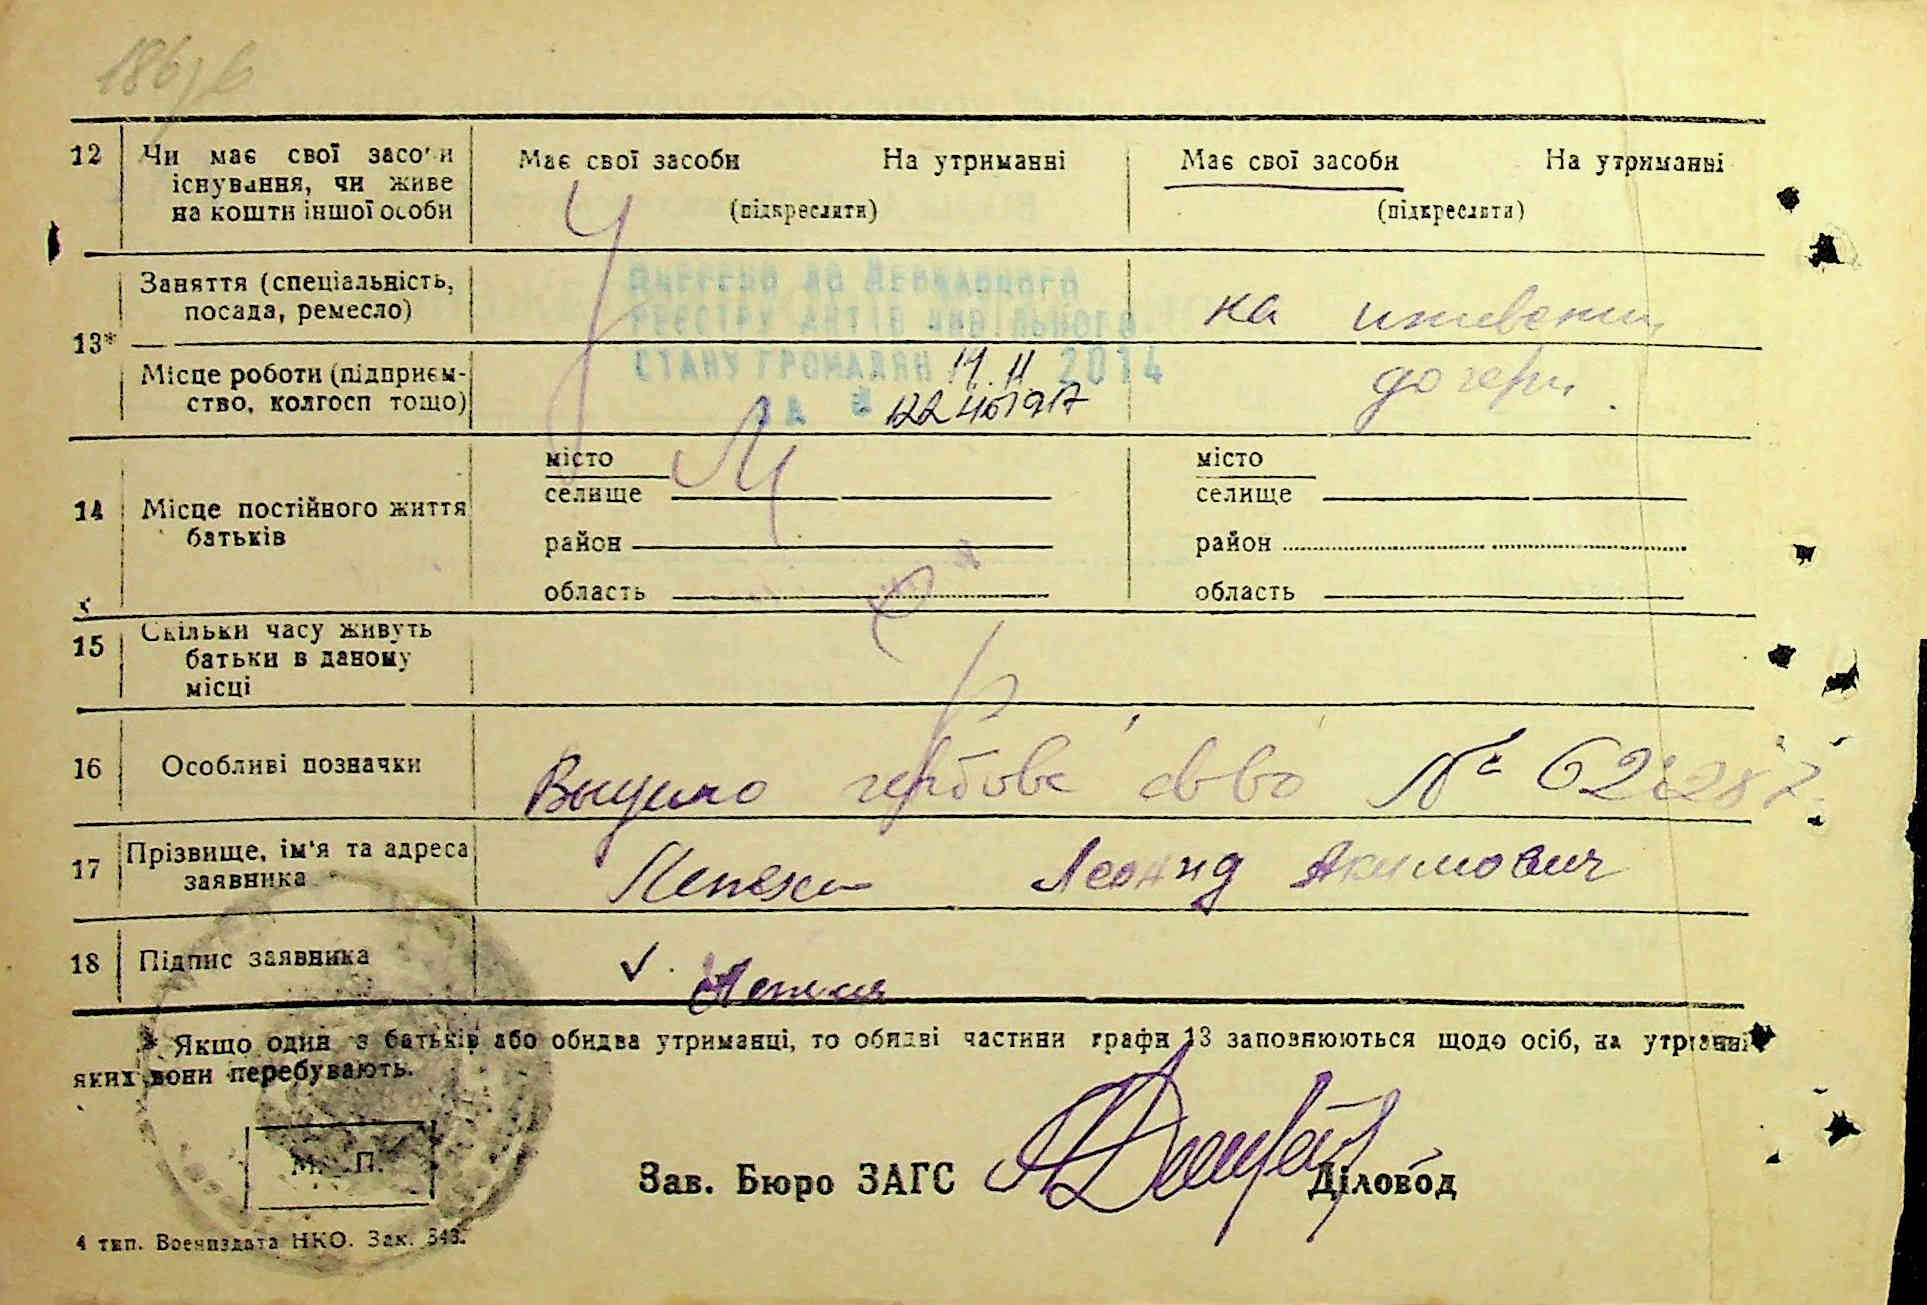 12 Чи має свої засоби
існування, чи живе
на кошти іншої особи
Має свої засоби На утриманні
(підкреслити)
Має свої засоби На утриманні
(підкреслити)
13*
Заняття (спеціальність,
посада, ремесло)
на иждевении
Місце роботи (підприєм-
ство, колгосп тощо)
дочери.
Внесено до Державного
реєстру актів цивільного
стану громадян 14.11 2014
за №
14 Місце постійного життя
батьків
місто
селище
район
область
місто
селище
район
область
Умер
15 Скільки часу живуть
батьки в даному
місці
16 Особливі позначки
гербове св-во №
17 Прізвище, ім'я та адреса
заявника
Леонид Акимович
18 Підпис заявника
* Якщо один з батьків або обидва утриманці, то обидві частини графи 13 заповнюються щодо осіб, на утриманні
яких вони перебувають.
М. П.
Зав. Бюро ЗАГС Діловод
4 тип. Воениздата НКО. Зак. 343.